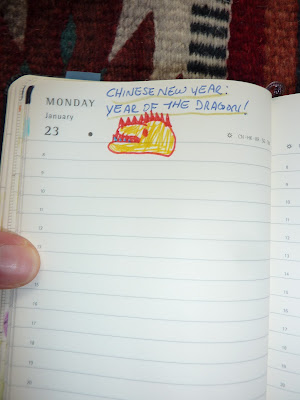 CHINESE NEW YEAR:
MONDAY
YEAR OF THE DRAGON!
January
23
8
9
10
11
12
13
15
16
17
18
19
20